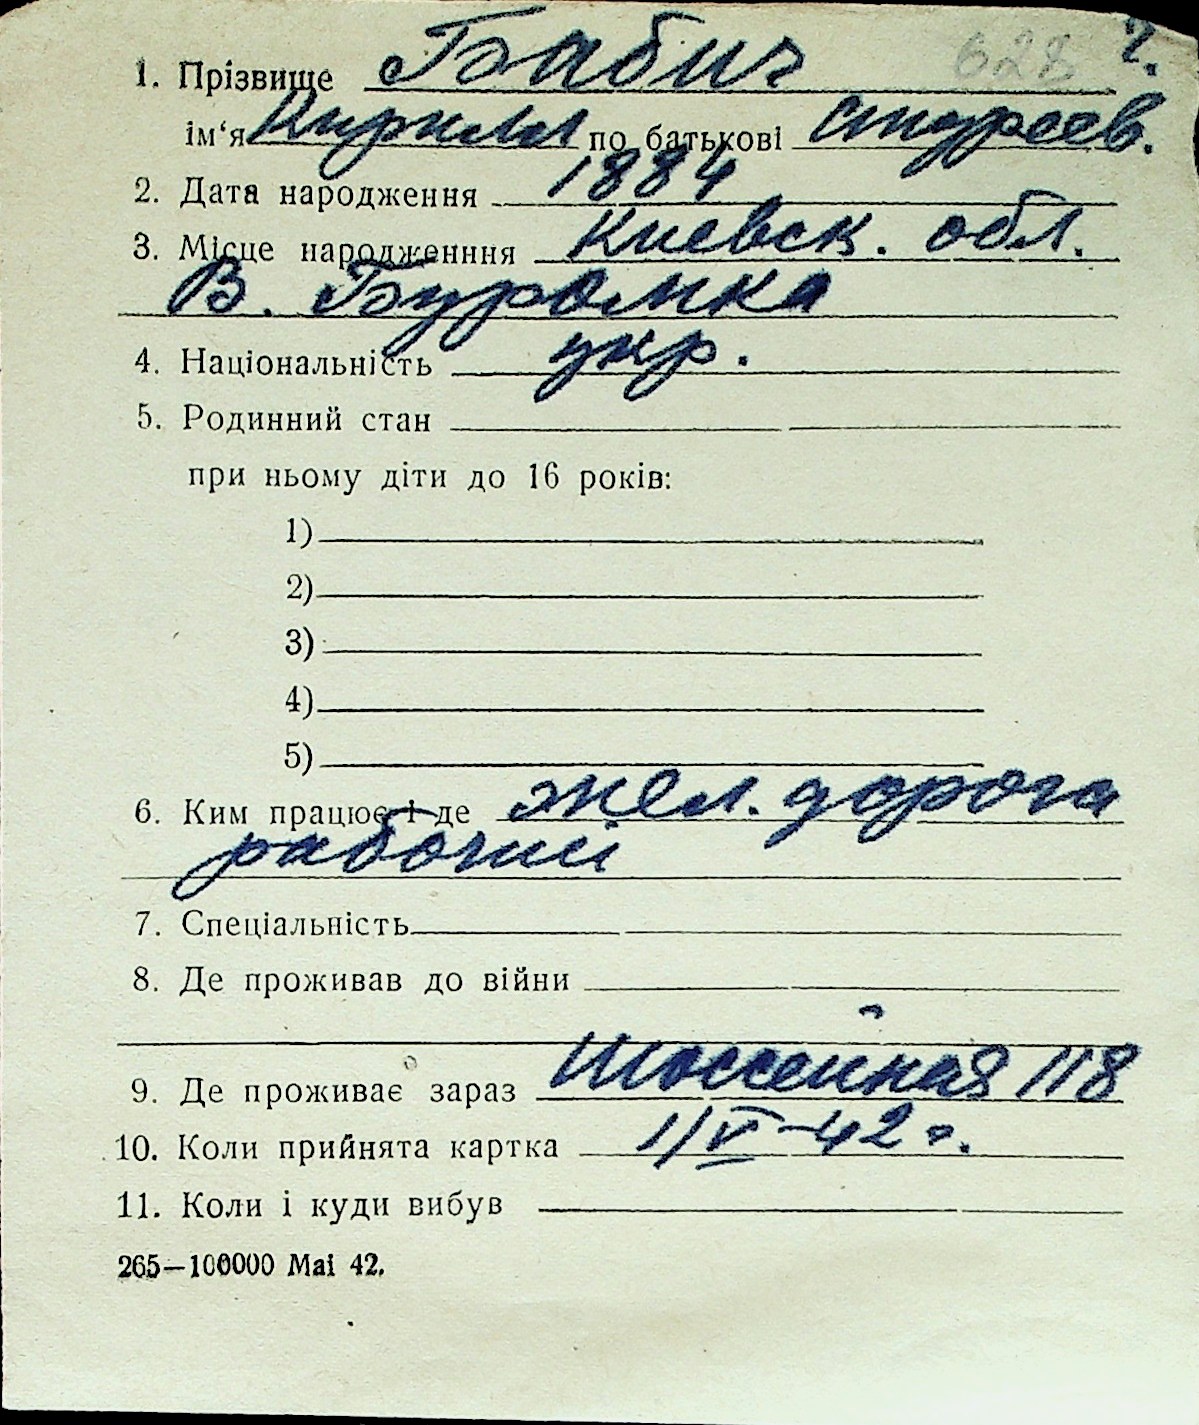 628 2.
1. Прізвище Бабич
ім‘я Кирилл по батькові
2. Дата народження 1884
3. Місце народженння Киевск. обл.
В. Буромка
4. Національність укр.
5. Родинний стан
при ньому діти до 16 років:
1)
2)
3)
4)
5)
6. Ким працює і де жел. дорога
рабочий
7. Спеціальність
8. Де проживав до війни
9. Де проживає зараз Шоссейная 118
10. Коли прийнята картка 1/V-42 г.
11. Коли і куди вибув
265—100000 Mai 42.